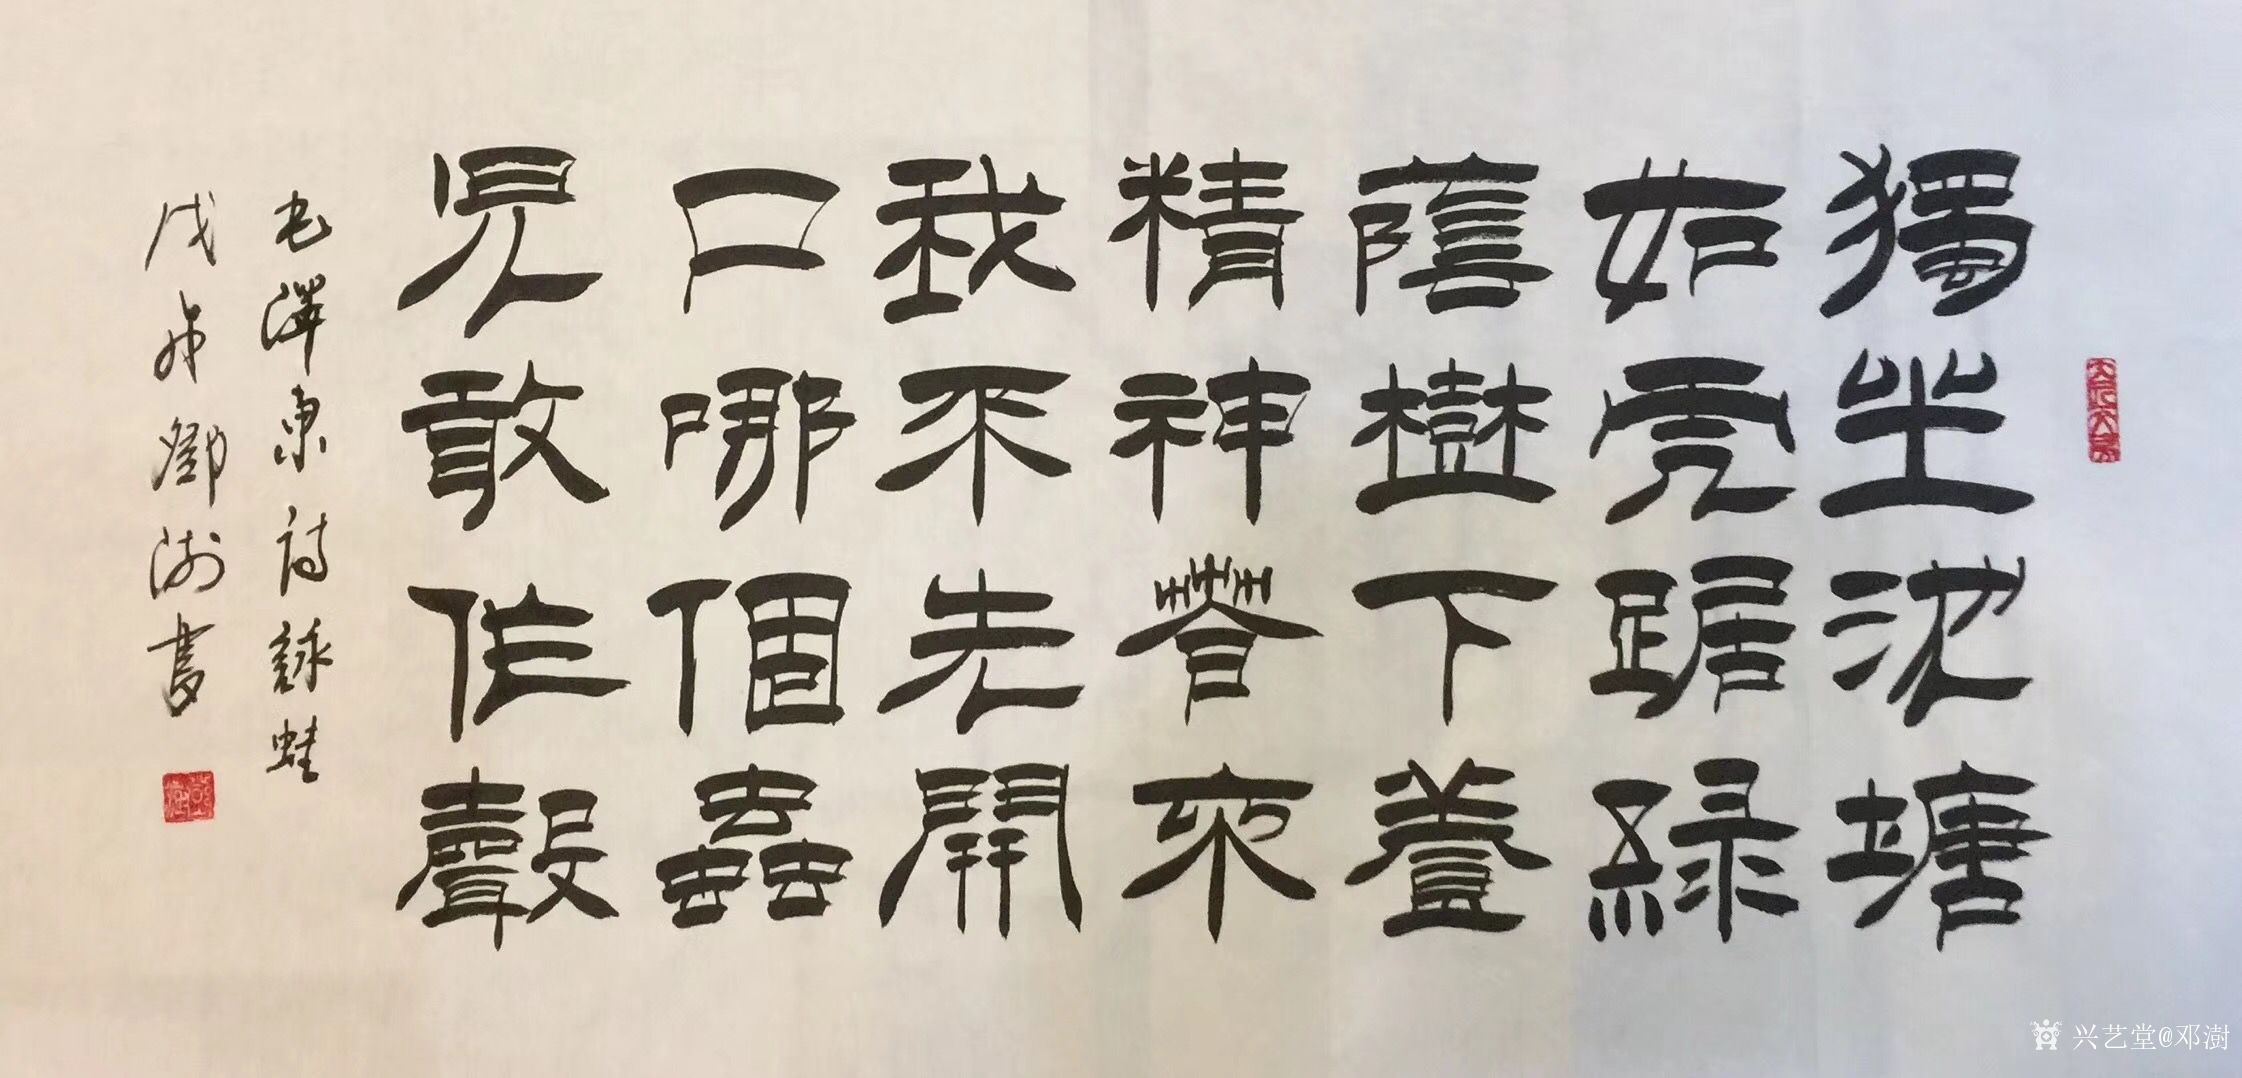 獨坐池塘
如虎踞綠
蔭樹下養
精神春來
我不先開
口哪個蟲
兒敢作聲
毛澤東詩詠蛙
戊戌鄧澍書
兴艺堂@邓澍